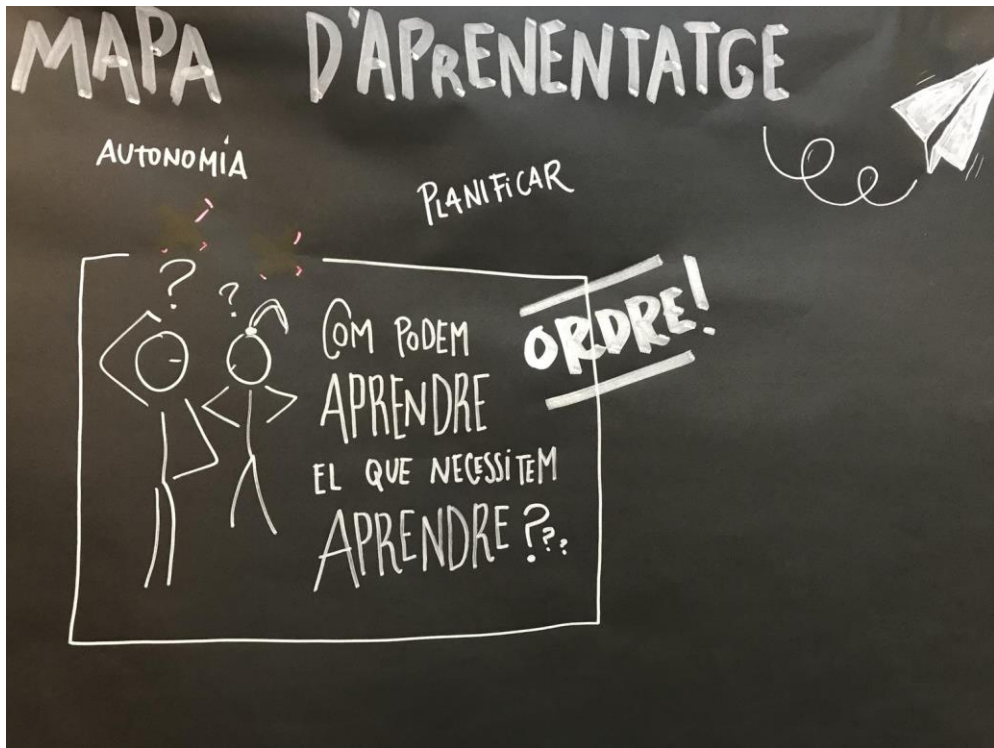 MAPA D'APRENENTATGE
AUTONOMÍA
PLANIFICAR
? ?
COM PODEM
APRENDRE
EL QUE NECESSITEM
APRENDRE ???
ORDRE!